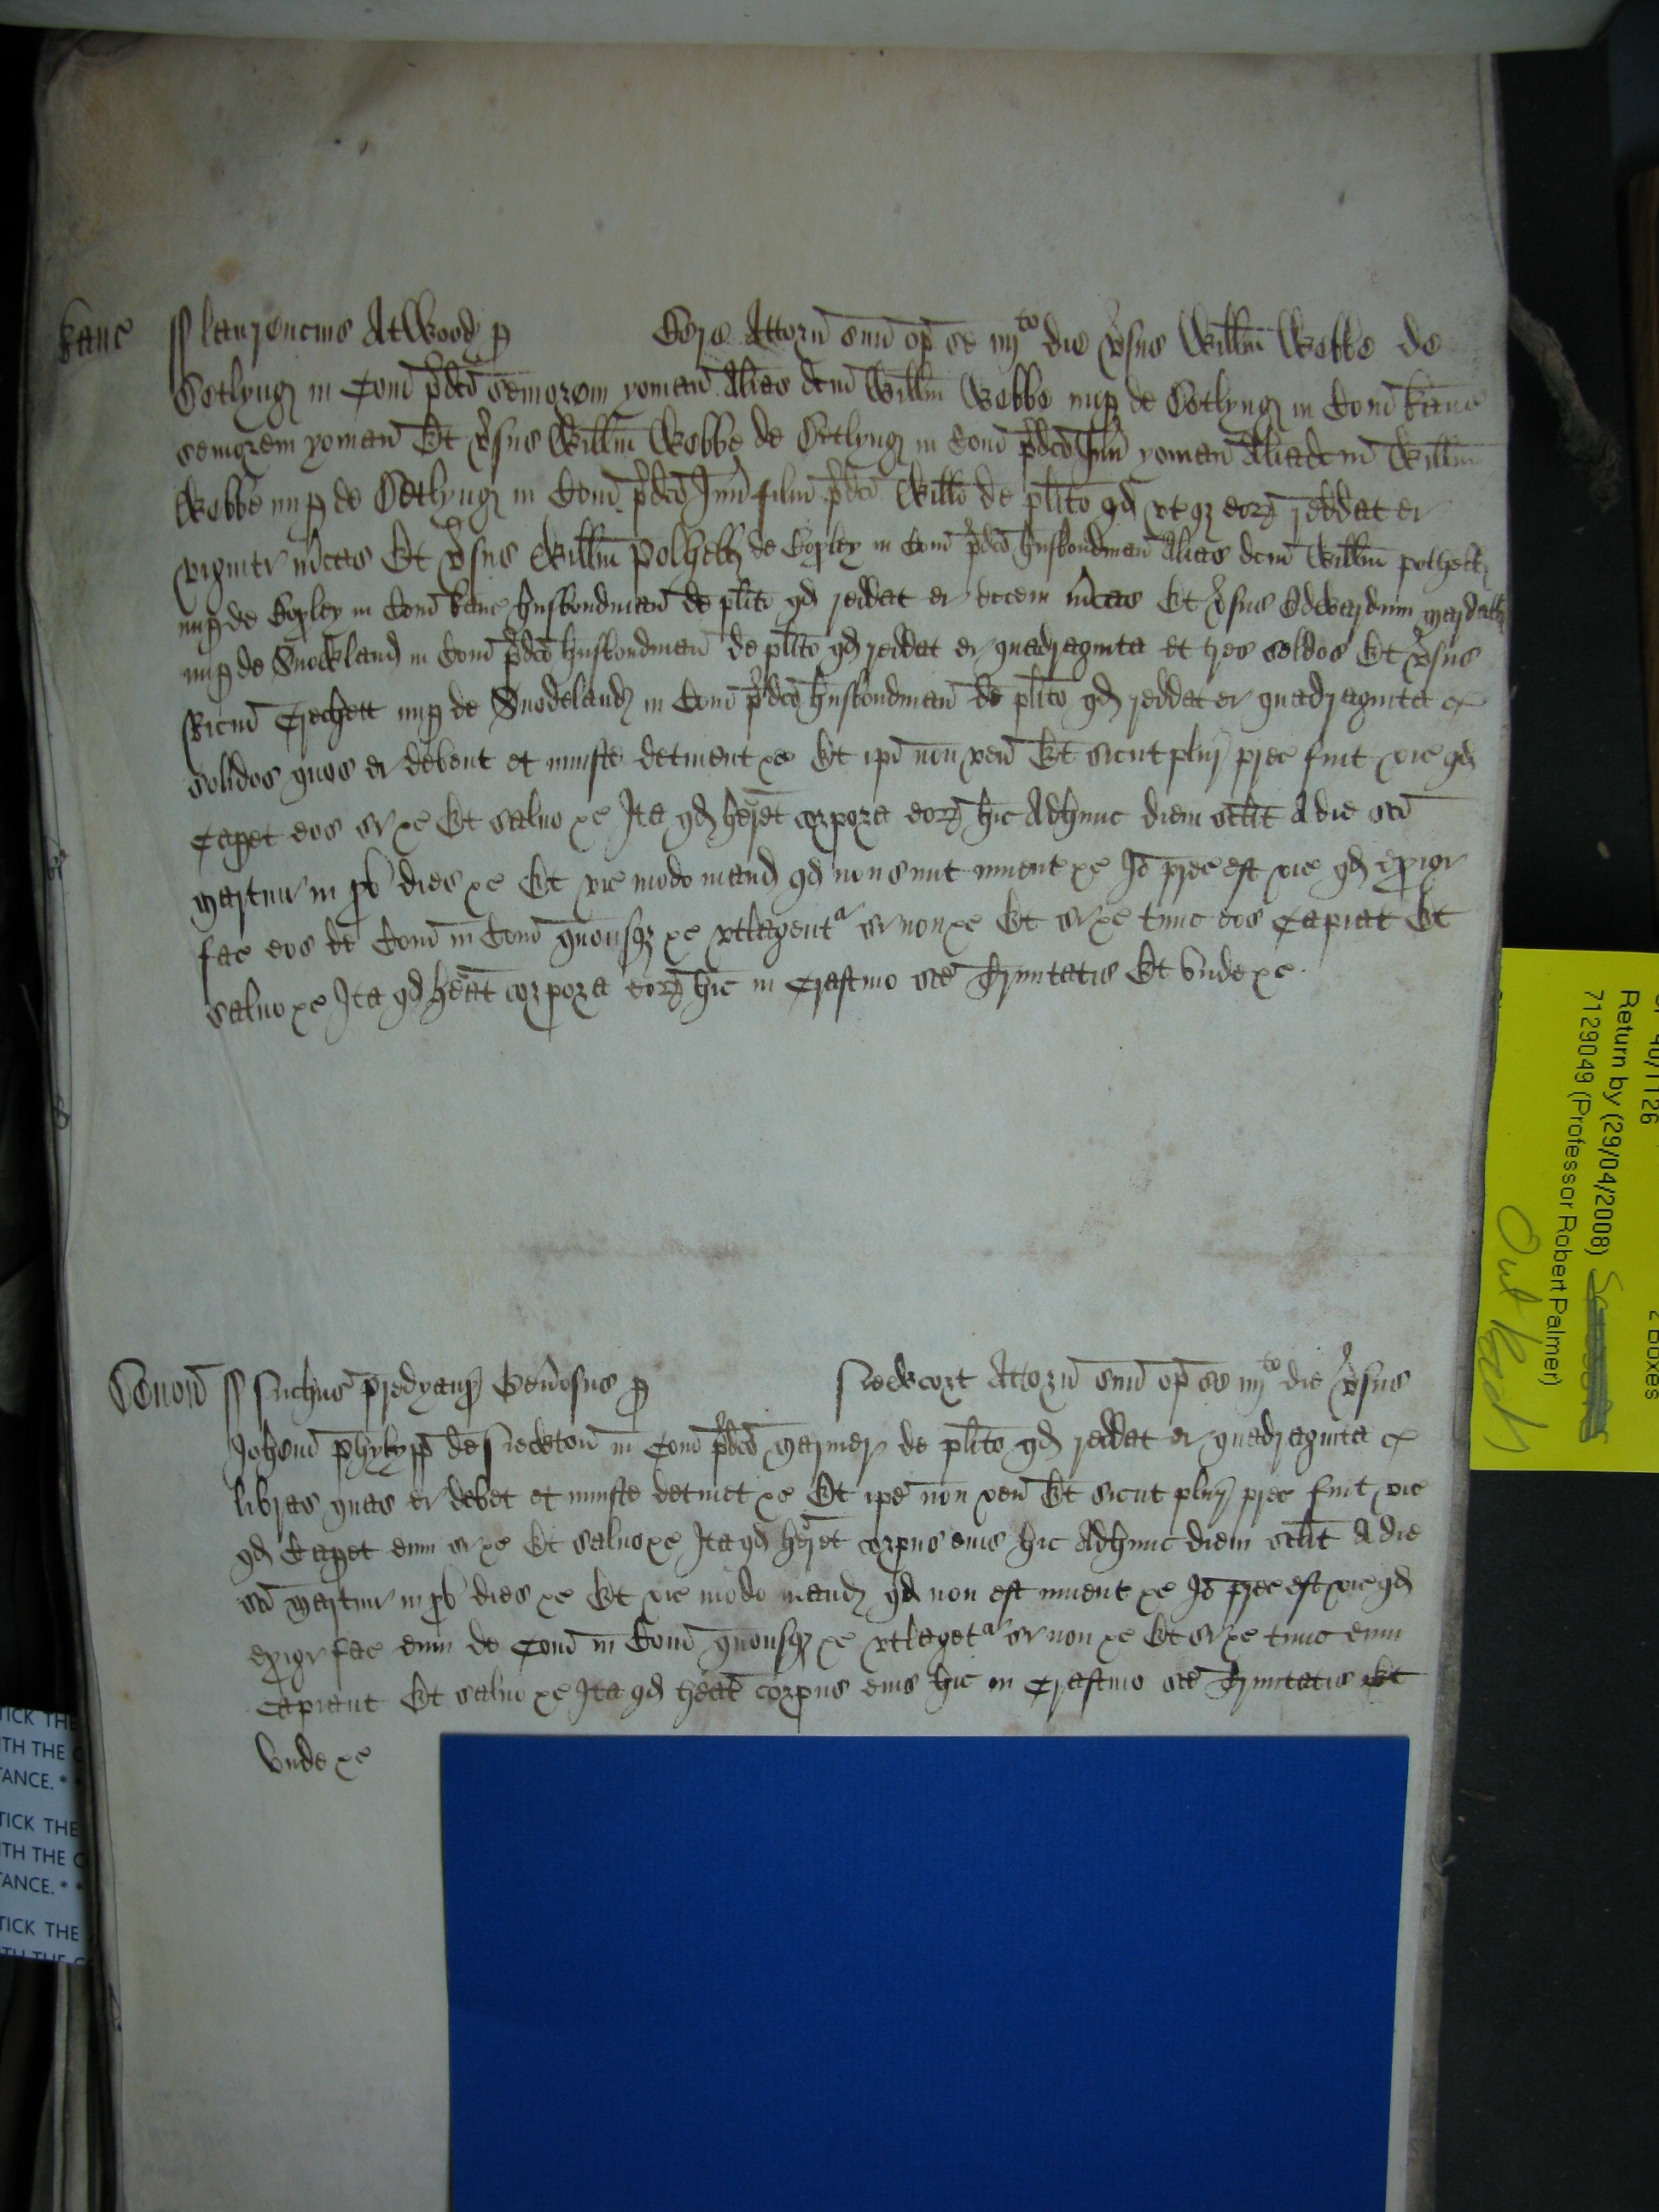 kanc
ss laurencius AtWood p Cere Attorn suu op se iiijto die vsus Willm Webbe de
Cetlyng in Com pdco seniorem yoman Alias dcm Willm Webbe nup de Cetlyng in Com kanc
seniorem yoman Et vsus Willm Webbe de Cetlyng in Com pdco Jun yoman Alias dcm Willm
Webbe nup de Cetlyng in Com pdco Jun filiu pdci Willi de plito qd utqz eorz reddat ei
viginti mcas Et vsus Willm polhett de Copley in Com pdco husbondman Alias dcm Willm polhett
nup de Copley in Com kanc husbondman de plito qd reddat ei decem mcas Et vsus Edwardum
nup de Snodland in Com pdco husbondman de plito qd reddat ei quadraginta et tres solidos Et vsus
Ricm Crechett nup de Snodeland in Com pdco husbondman de plito qd reddat ei quadraginta
solidos quos ei debent et iniuste detinent xc Et ipi non ven Et sicut plur prec fuit vic qd
Capet eos si xc Et saluo xc Ita qd heret corpora eorz hic Adhunc diem scilt A die sci
martini in xv dies xc Et vic modo mand qd non sunt inuent xc Io prec est vic qd exigi
fac eos de Com in Com quousqz xc utlagentr si non xc Et si xc tunc eos Capiat Et
saluo xc Ita qd heat corpora eorz hic in Crastino sce Trinitatis Et Unde xc
Deuon
ss p Attorn suu op se iiijto die vsus
Johem phylypp de in Com pdco mariner de plito qd reddat ei quadraginta
libras quas ei debet et iniuste detinet xc Et ipe non ven Et sicut plur prec fuit vic
qd Capet eum si xc Et saluo xc Ita qd heret corpus eius hic Adhunc diem scilt A die
sci martini in xv dies xc Et vic modo mand qd non est inuent xc Io prec est vic qd
exigi fac eum de Com in Com quousqz xc utlagetr si non xc Et si xc tunc eum
Capiant Et saluo xc Ita qd heat corpus eius hic in Crastino sce Trinitatis Et
Unde xc
1126
2 Boxes
Return by (29/04/2008)
7129049 (Professor Robert Palmer)
Out
TICK THE
ITH THE
TANCE. *
TICK THE
ITH THE
TANCE. *
TICK THE